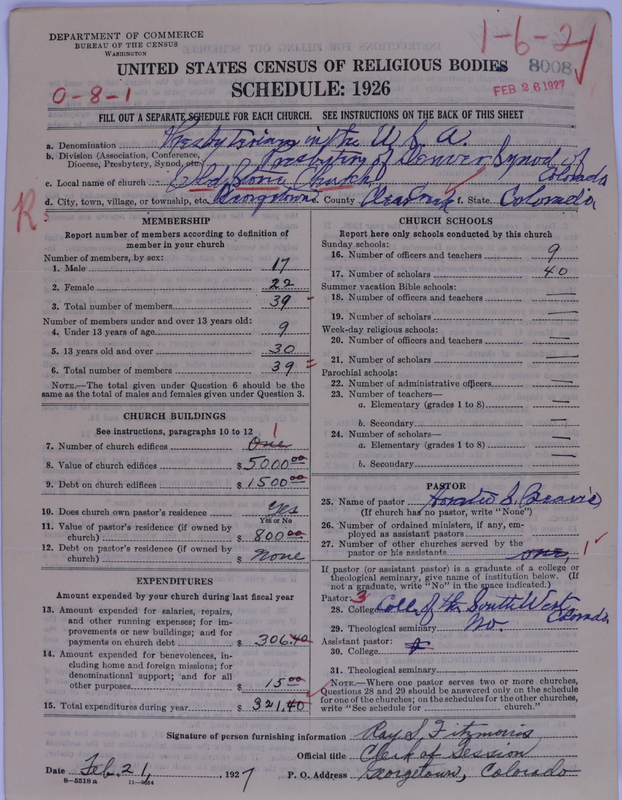 DEPARTMENT OF COMMERCE
BUREAU OF THE CENSUS
WASHINGTON
1-6-2
UNITED STATES CENSUS OF RELIGIOUS BODIES
8008
SCHEDULE: 1926
FEB 26 1927
0-8-1
FILL OUT A SEPARATE SCHEDULE FOR EACH CHURCH. SEE INSTRUCTIONS ON THE BACK OF THIS SHEET
a. Denomination Presbyterian in the U. S. A.
b. Division (Association, Conference, Diocese, Presbytery, Synod, etc.) Presbytery of Denver Synod of Colorado
c. Local name of church Old Stone Church
d. City, town, village, or township, etc. Georgetown e. County Clear Creek f. State Colorado
R
MEMBERSHIP
Report number of members according to definition of
member in your church
Number of members, by sex:
1. Male 17
2. Female 22
3. Total number of members 39
Number of members under and over 13 years old:
4. Under 13 years of age 9
5. 13 years old and over 30
6. Total number of members 39
NOTE.—The total given under Question 6 should be the
same as the total of males and females given under Question 3.
CHURCH BUILDINGS
See instructions, paragraphs 10 to 12
7. Number of church edifices One 1
8. Value of church edifices $ 5000 00
9. Debt on church edifices $ 1500 00
10. Does church own pastor's residence Yes
Yes or No
11. Value of pastor's residence (if owned by
church) $ 800 00
12. Debt on pastor's residence (if owned by
church) $ None
EXPENDITURES
Amount expended by your church during last fiscal year
13. Amount expended for salaries, repairs,
and other running expenses; for im-
provements or new buildings; and for
payments on church debt $ 306.40
14. Amount expended for benevolences, in-
cluding home and foreign missions; for
denominational support; and for all
other purposes $ 15 00
15. Total expenditures during year $ 321.40
CHURCH SCHOOLS
Report here only schools conducted by this church
Sunday schools:
16. Number of officers and teachers 9
17. Number of scholars 40
Summer vacation Bible schools:
18. Number of officers and teachers —
19. Number of scholars —
Week-day religious schools:
20. Number of officers and teachers —
21. Number of scholars —
Parochial schools:
22. Number of administrative officers —
23. Number of teachers—
a. Elementary (grades 1 to 8) —
b. Secondary —
24. Number of scholars—
a. Elementary (grades 1 to 8) —
b. Secondary —
PASTOR
25. Name of pastor Horatio S.
(If church has no pastor, write "None")
26. Number of ordained ministers, if any, em-
ployed as assistant pastors —
27. Number of other churches served by the
pastor or his assistants one, 1
If pastor (or assistant pastor) is a graduate of a college or
theological seminary, give name of institution below. (If
not a graduate, write "No" in the space indicated.)
Pastor: 3
28. College Coll. of the South West Colorado
29. Theological seminary No.
Assistant pastor:
30. College
31. Theological seminary
NOTE.—Where one pastor serves two or more churches,
Questions 28 and 29 should be answered only on the schedule
for one of the churches; on the schedules for the other churches,
write "See schedule for ........ church."
Signature of person furnishing information Ray S. Fitzmorris
Official title Clerk of Session
Date Feb. 21, 1927 P. O. Address Georgetown, Colorado
8—5518 a